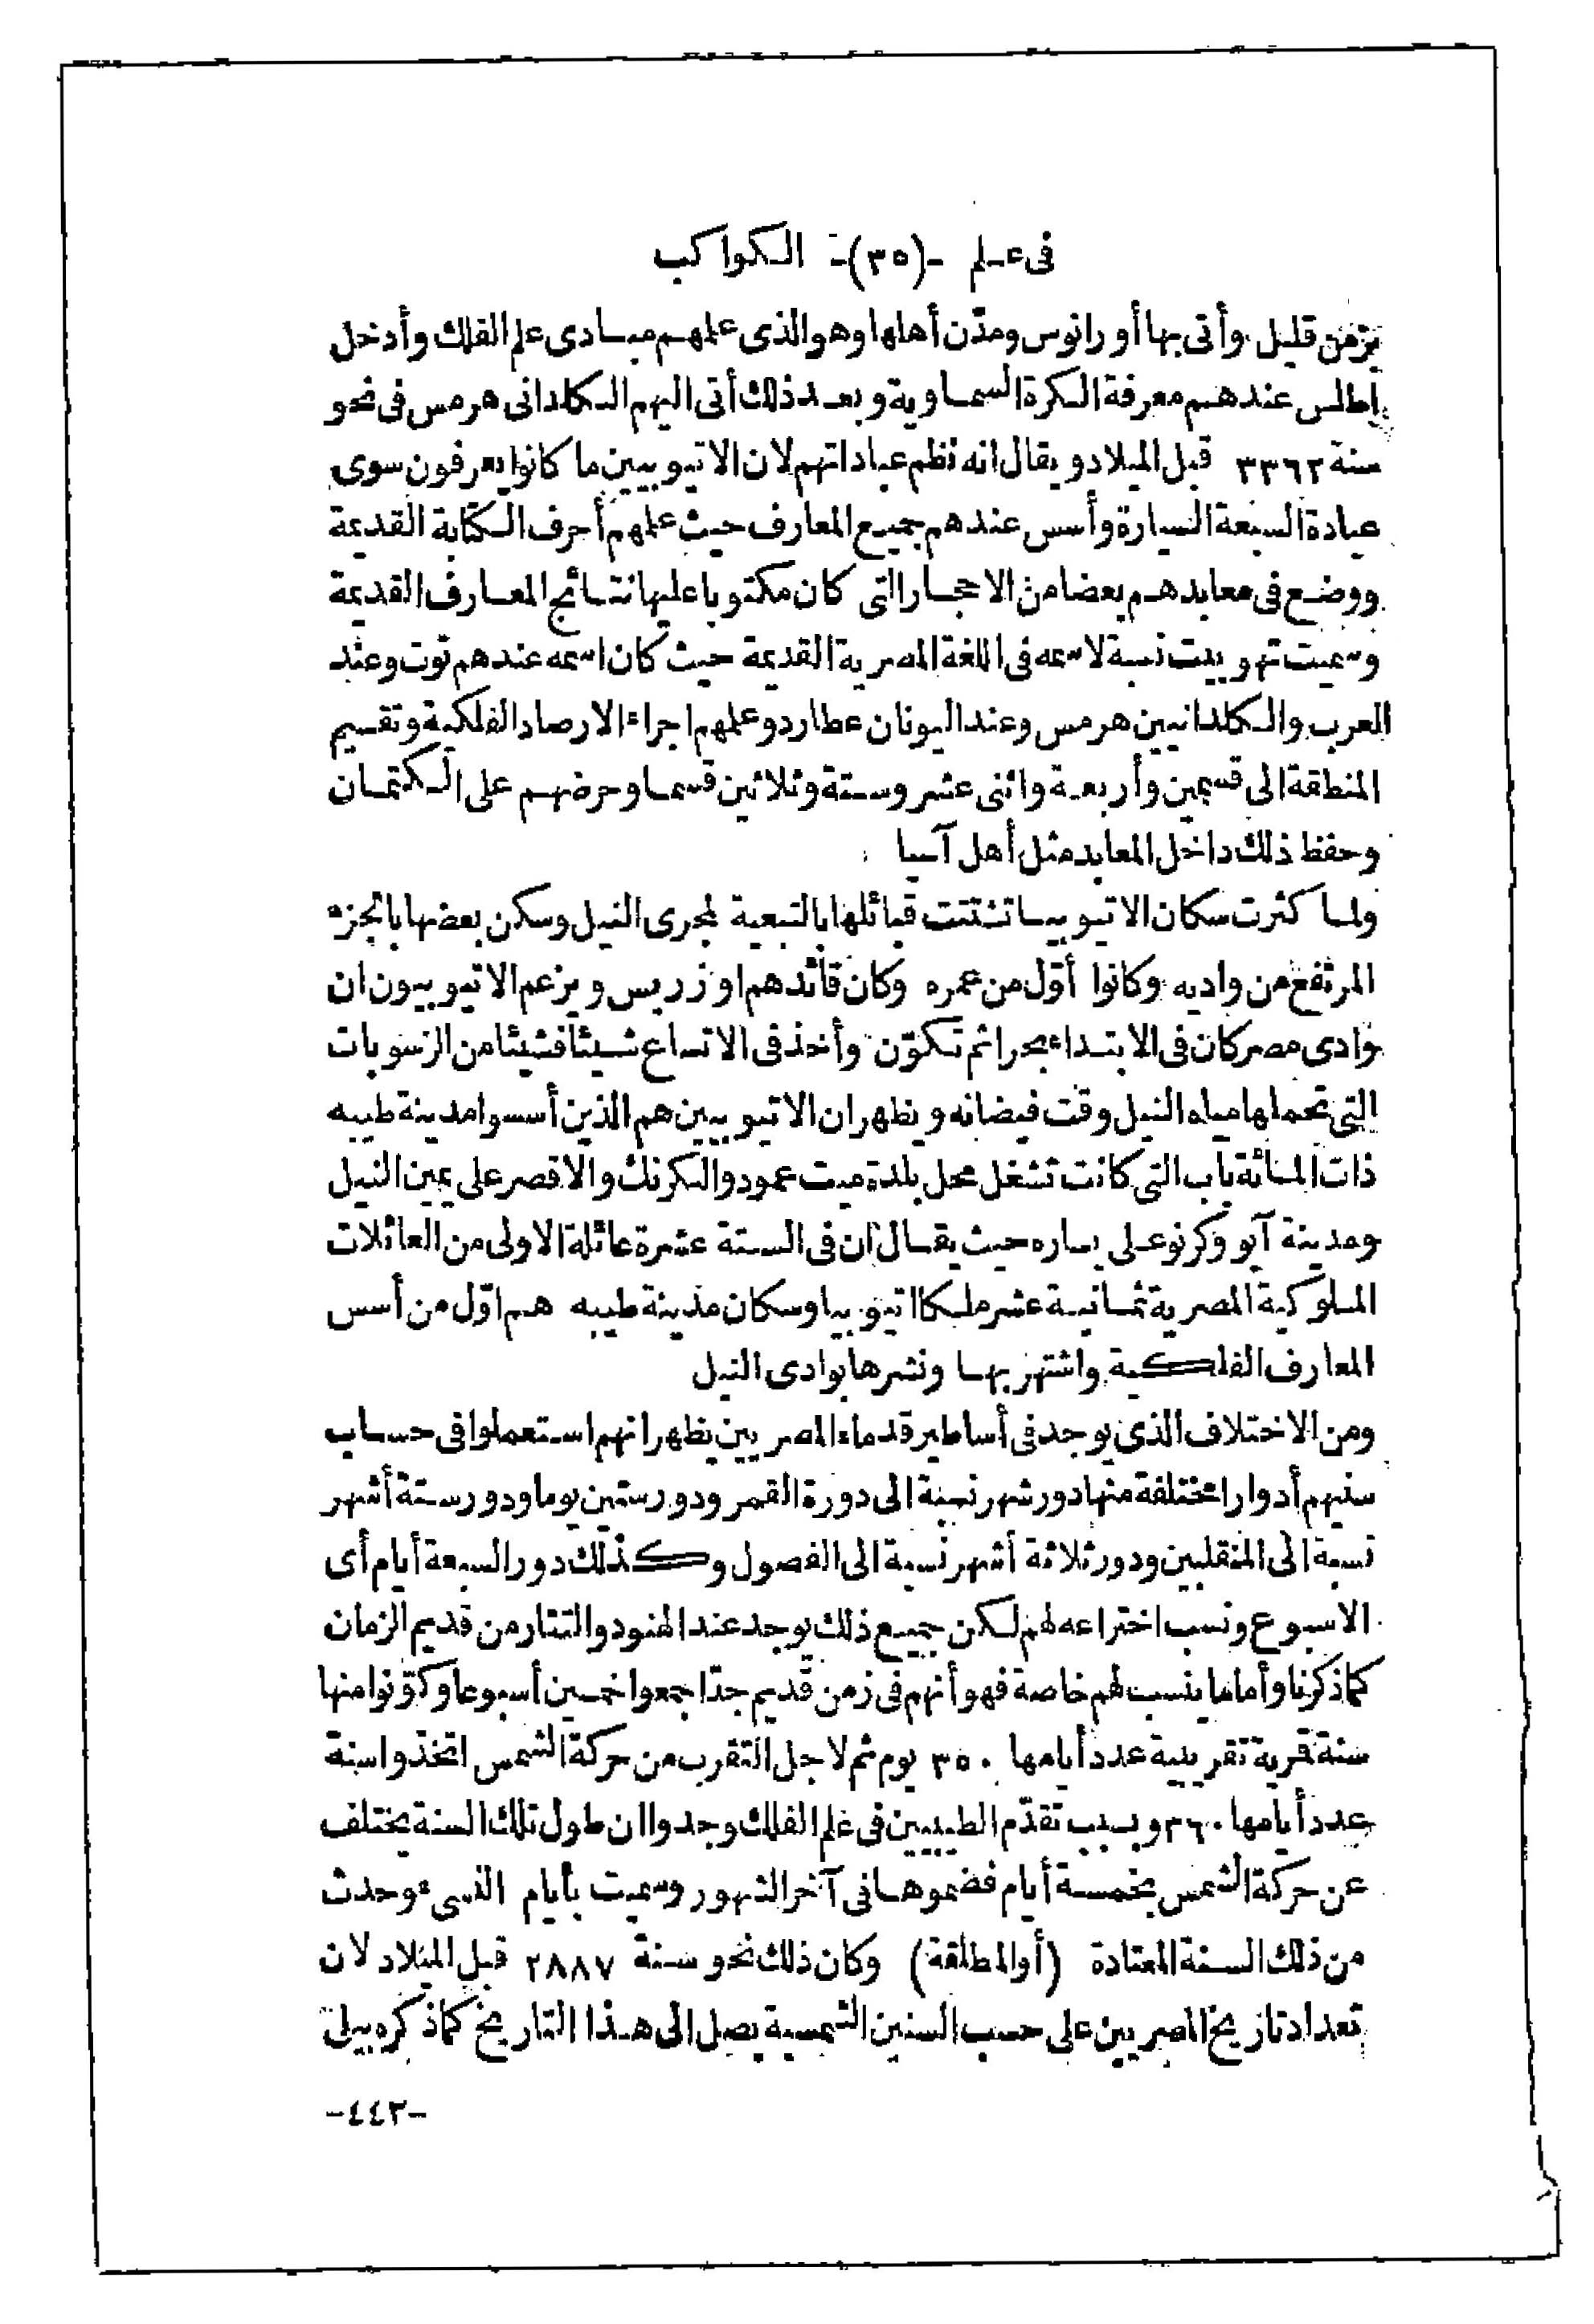 فى علم -(٣٥)- الكواكب
بزمن قليل وأتى بها أورانوس ومدّن أهلها وهو الذى علمهم مبادى علم الفلك وأدخل
اطلس عندهم معرفة الكرة السماوية وبعد ذلك أتى اليهم الكلدانى هرمس فى نحو
سنة ٣٣٦٢ قبل الميلاد ويقال انه نظم عباداتهم لان الاتيوبيين ما كانوا يعرفون سوى
عبادة السبعة السيارة وأسس عندهم جميع المعارف حيث علمهم أحرف الكتابة القديمة
ووضع فى معابدهم بعضا من الاحجار التى كان مكتوبا عليها نتائج المعارف القديمة
وسميت تهوبيت نسبة لاسمه فى اللغة المصرية القديمة حيث كان اسمه عندهم توت وعند
العرب والكلدانيين هرمس وعند اليونان عطارد وعلمهم اجراء الارصاد الفلكية وتقسيم
المنطقة الى قسمين وأربعة واثنى عشر وستة وثلاثين قسما وحرضهم على الكتمان
وحفظ ذلك داخل المعابد مثل أهل آسيا
ولما كثرت سكان الاتيوبيا تشتتت قبائلها بالتبعية لمجرى النيل وسكن بعضها بالجزء
المرتفع من واديه وكانوا أوّل من عمره وكان قائدهم اوزريس ويزعم الاتيوبيون ان
وادى مصر كان فى الابتداء بحرا ثم تكوّن وأخذ فى الاتساع شيئا فشيئا من الرسوبات
التى تحملها مياه النيل وقت فيضانه ويظهر ان الاتيوبيين هم الذين أسسوا مدينة طيبه
ذات المائة باب التى كانت تشغل محل بلدة ميت عمود والكرنك والاقصر على يمين النيل
ومدينة آبو وكرنو على يساره حيث يقال ان فى الستة عشرة عائلة الاولى من العائلات
الملوكية المصرية ثمانية عشر ملكا اتيوبيا وسكان مدينة طيبه هم اوّل من أسس
المعارف الفلكية واشتهر بها ونشرها بوادى النيل
ومن الاختلاف الذى يوجد فى أساطير قدماء المصريين يظهر انهم استعملوا فى حساب
سنيهم أدوارا مختلفة منها دور شهر نسبة الى دورة القمر ودور ستين يوما ودور ستة أشهر
نسبة الى المنقلبين ودور ثلاثة أشهر نسبة الى الفصول وكذلك دور السبعة أيام أى
الاسبوع ونسب اختراعه لهم لكن جميع ذلك يوجد عند الهنود والتتار من قديم الزمان
كما ذكرنا وأما ما ينسب لهم خاصة فهو أنهم فى زمن قديم جدّا جمعوا خمسين أسبوعا وكوّنوا منها
سنة قمرية تقريبية عدد أيامها ٣٥٠ يوم ثم لاجل التقرب من حركة الشمس اتخذوا سنة
عدد أيامها ٣٦٠ وبسبب تقدّم الطيبيين فى علم الفلك وجدوا ان طول تلك السنة يختلف
عن حركة الشمس بخمسة أيام فضموها فى آخر الشهور وسميت بأيام النسىء وحدث
من ذلك السنة المعتادة (أو المطلقة) وكان ذلك نحو سنة ٢٨٨٧ قبل الميلاد لان
تعداد تاريخ المصريين على حسب السنين الشمسية يصل الى هذا التاريخ كما ذكره بيلى
-٤٤٣-